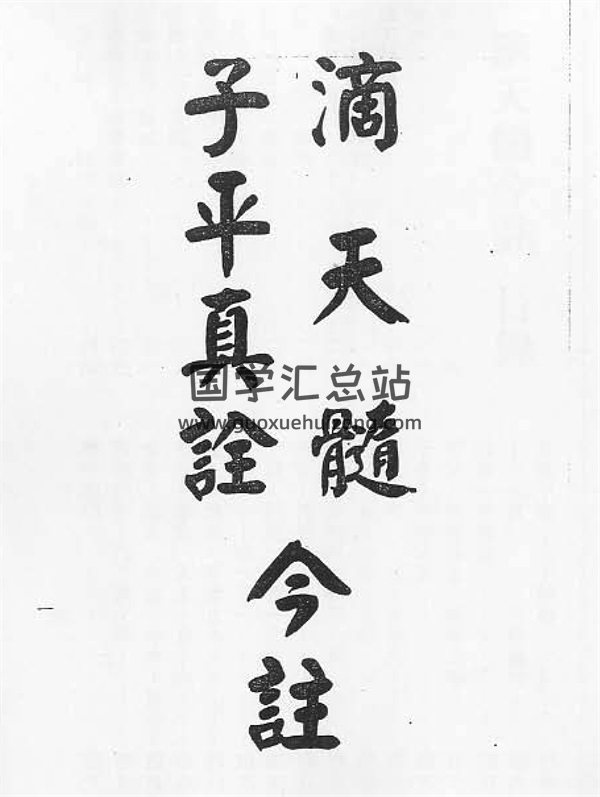 滴天髓
子平真詮
今註
国学汇总站
www.guoxuehuizong.com
一